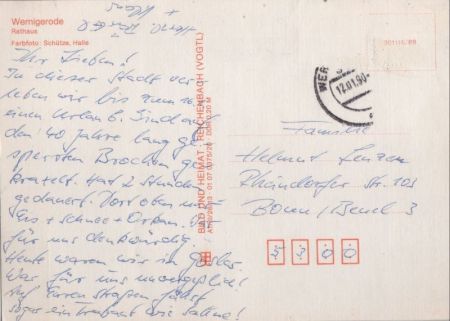 Wernigerode
Rathaus
Farbfoto: Schütze, Halle
Ihr Lieben!
In dieser Stadt ver
leben wir bis zum
einen Urlaub. Sind auf
den 40 Jahre lang ge
sperrten Brocken ge
kraxelt. Hat 2 Stunden
gedauert. Dort oben nur
Eis + Schnee + Orkan.
für uns denkwürdig.
Heute waren wir in Goslar.
War für uns unvergeßlich!
Auf Euren Straßen fährt
sogar ein Trabant wie Sahne!
BILD UND HEIMAT · REICHENBACH (VOGTL)
WER
12.01.90
Familie
Helmut Lenzen
Rheindorfer Str. 103
Bonn/Beuel 3
5300